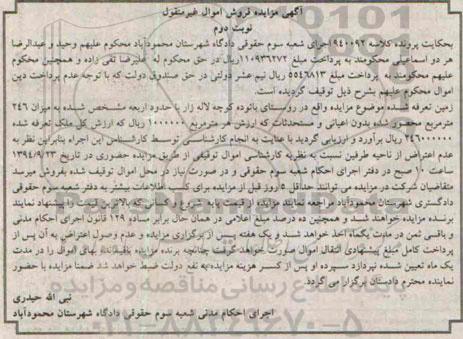 آگهی مزایده فروش اموال غیرمنقول
نوبت دوم
بحکایت پرونده کلاسه ۹۴۰۰۹۲ اجرای شعبه سوم حقوقی دادگاه شهرستان محمودآباد محکوم علیهم وحید و عبدالرضا
هر دو اسماعیلی محکومند به پرداخت مبلغ ۱۱۰۹۳۶۲۷۲ ریال در حق محکوم له علیرضا تقی زاده و همچنین محکوم
علیهم محکومند به پرداخت مبلغ ۵۵۴۶۸۱۳ ریال نیم عشر دولتی در حق صندوق دولت که با توجه عدم پرداخت دین
اموال محکوم علیهم بشرح ذیل توقیف گردیده است.
زمین تعرفه شده موضوع مزایده واقع در روستای بائوده کوچه لاله زار با حدود اربعه مشخص شده به میزان ۲۴۶
مترمربع محصور شده بدون اعیانی و مستحدثات که ارزش هر مترمربع ۱۰۰۰۰۰۰ ریال که ارزش کل ملک تعرفه شده
۲۴۶۰۰۰۰۰۰ ریال برآورد و ارزیابی گردید با عنایت به انجام کارشناسی توسط کارشناس این اجراء بنابراین نظر به
عدم اعتراض از ناحیه طرفین نسبت به نظریه کارشناسی اموال توقیفی از طریق مزایده حضوری در تاریخ ۱۳۹۴/۹/۲۳
ساعت ۱۰ صبح در دفتر اجرای احکام شعبه سوم حقوقی و در صورت نیاز در محل اموال توقیف شده بفروش میرسد
متقاضیان شرکت در مزایده می توانند حداقل ۵ روز قبل از مزایده برای کسب اطلاعات بیشتر به دفتر شعبه سوم حقوقی
دادگستری شهرستان محمودآباد مراجعه نمایند مزایده از قیمت پایه شروع و کسانی که بالاترین قیمت را پیشنهاد نمایند
برنده مزایده خواهند شد و همچنین ده درصد مبلغ اعلامی در همان حال برابر ماده ۱۲۹ قانون اجرای احکام مدنی
و باقی ثمن در مدت یکماه اخذ خواهد شد و یک هفته پس از برگزاری مزایده و عدم وصول اعتراض به آن پس از
پرداخت کامل مبلغ پیشنهادی انتقال اموال صورت خواهد گرفت چنانچه برنده مزایده باقیمانده بهای اموال را در مدت
یک ماه تعیین شده نپردازد سپرده او پس از کسر هزینه مزایده به نفع دولت ضبط خواهد شد ضمنا مزایده با حضور
نماینده محترم دادستان برگزار می گردد.
نبی الله حیدری
اجرای احکام مدنی شعبه سوم حقوقی دادگاه شهرستان محمودآباد
۰۲۱-۸۸۳۴۹۶۷۰-۵